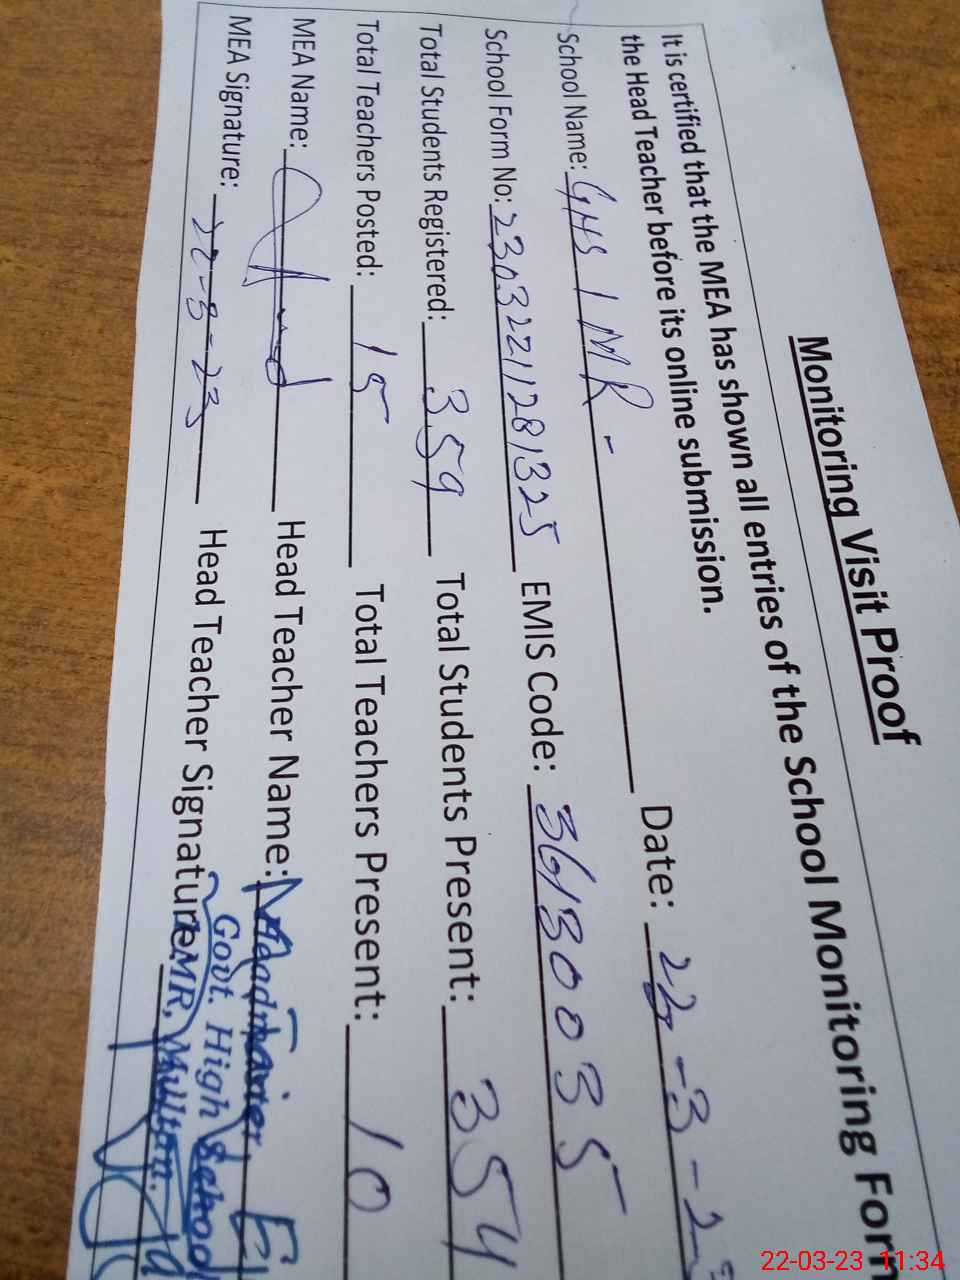 Monitoring Visit Proof
It is certified that the MEA has shown all entries of the School Monitoring Form
the Head Teacher before its online submission.
School Name: GHS 1 MR - Date: 22-3-23
School Form No: 23032211281325 EMIS Code: 36130035
Total Students Registered: 359 Total Students Present: 354
Total Teachers Posted: 15 Total Teachers Present: 10
MEA Name: Head Teacher Name: Headmaster,
Govt. High School
MEA Signature: 22-3-23 Head Teacher Signature: MR, Multan.
22-03-23 11:34